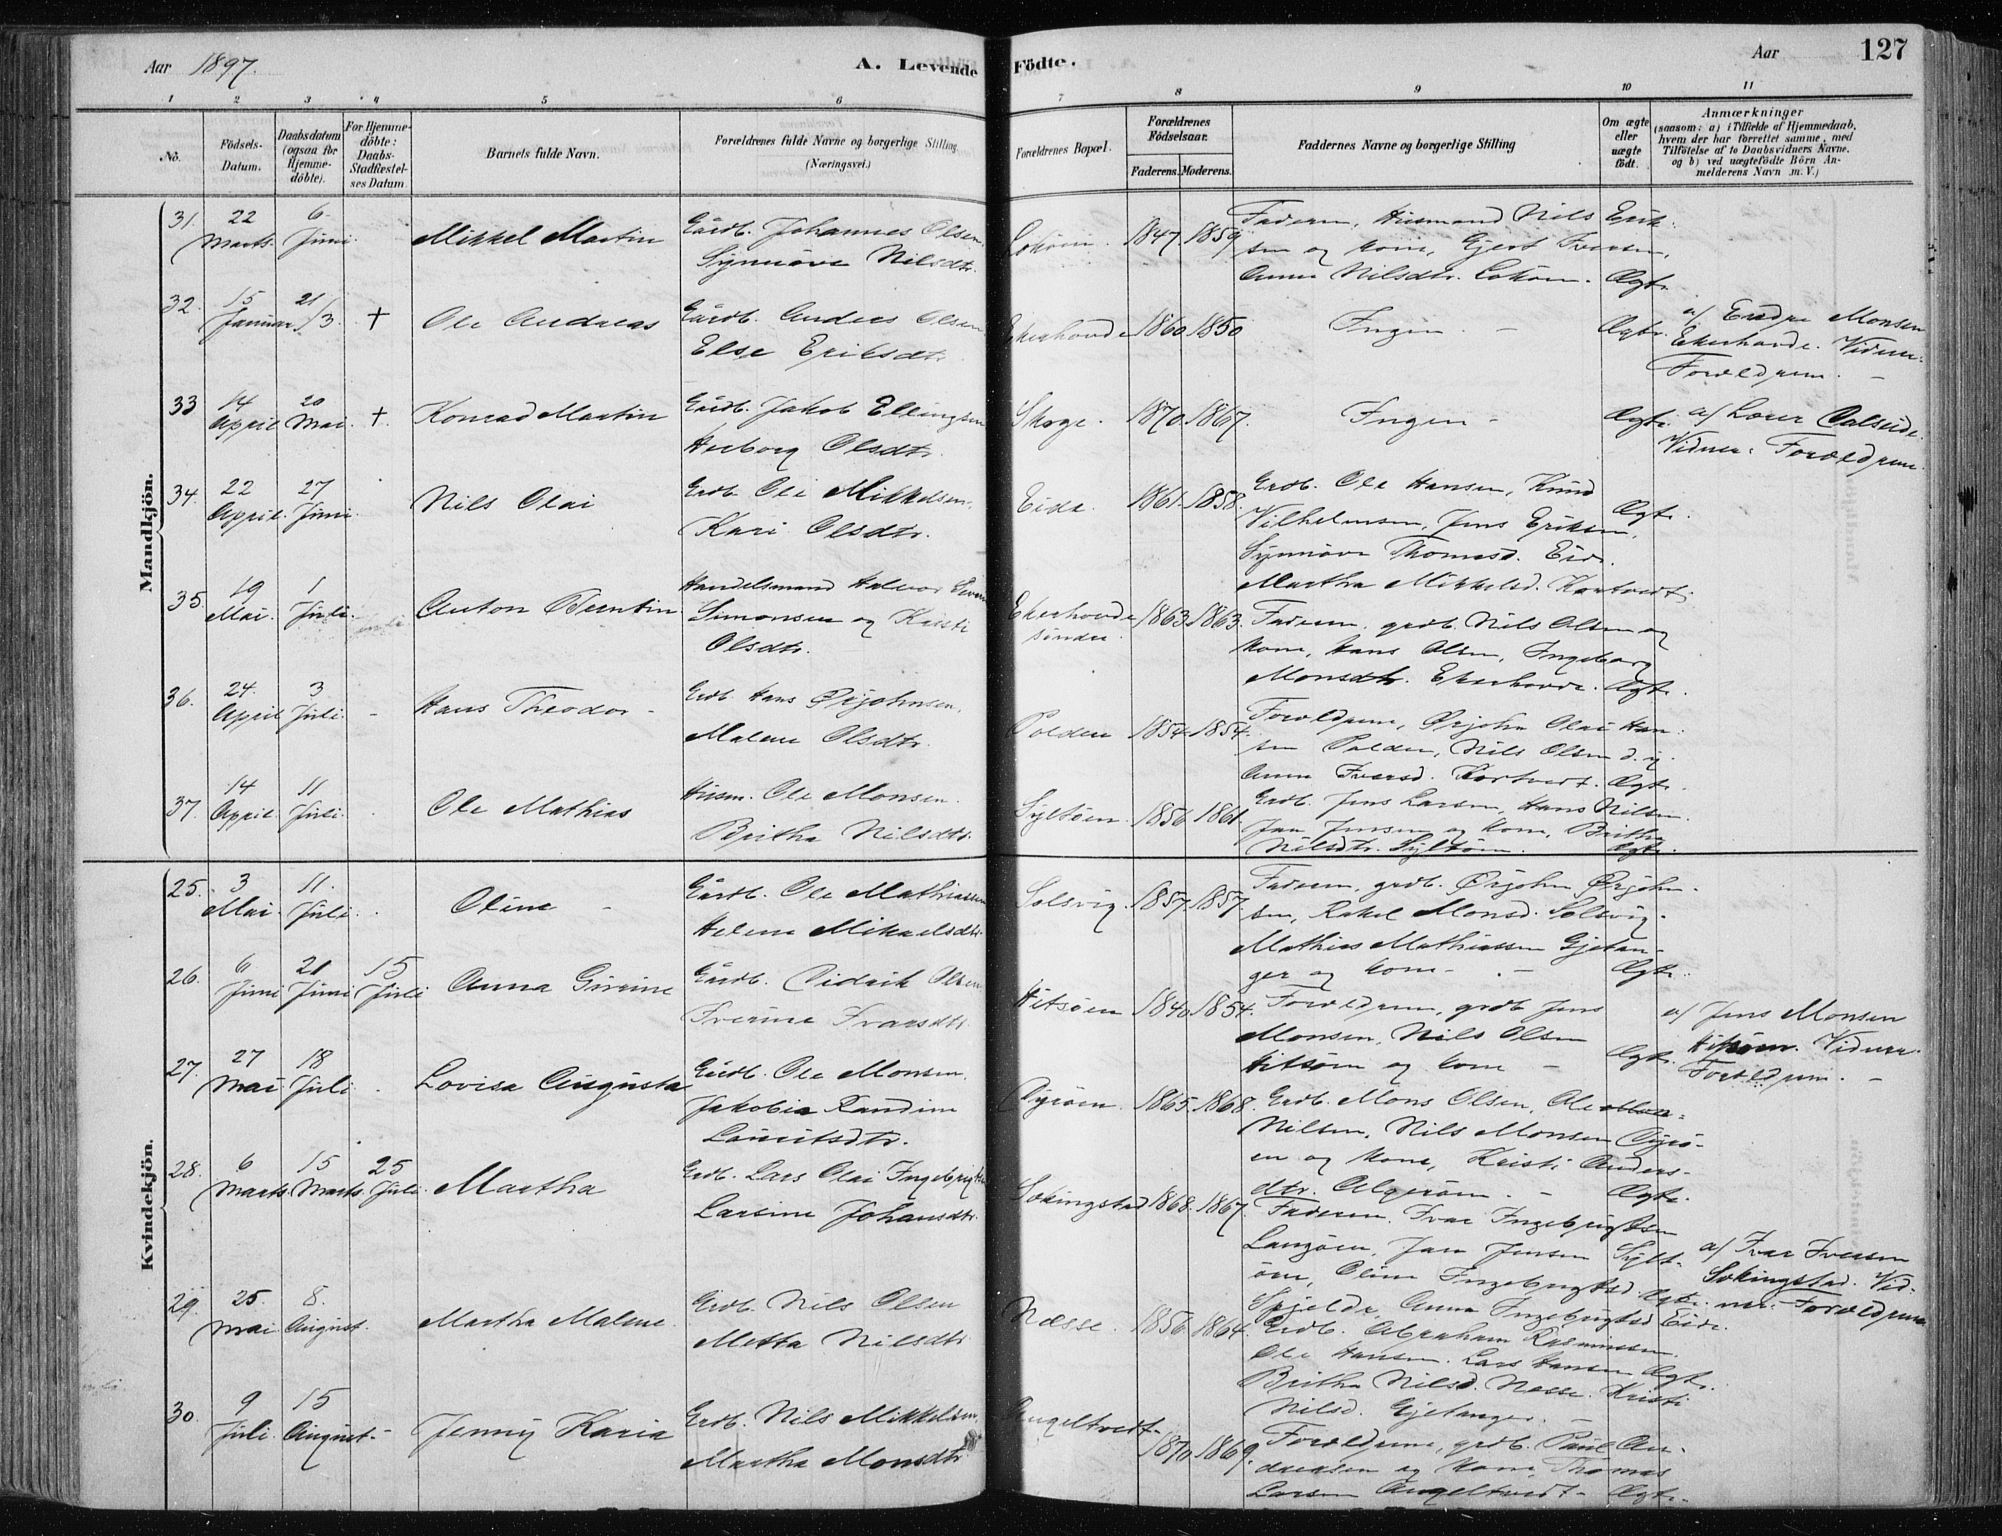 Aar 1897.
A. Levende Födte.
Aar
127
1 2 3 4 5 6 7 8 9 10 11
No.
Födsels-Datum.
Daabsdatum (ogsaa for Hjemme-döbte).
For Hjemme-döbte: Daabs-Stadfæstel-ses Datum
Barnets fulde Navn.
Forældrenes fulde Navne og borgerlige Stilling (Næringsvei.)
Forældrenes Bopæl.
Forældrenes Födselsaar.
Faderens. Moderens.
Faddernes Navne og borgerlige Stilling
Om ægte eller uægte födt.
Anmærkninger
(saasom: a) i Tilfælde af Hjemmedaab, hvem der har forrettet samme, med Tilföielse af to Daabsvidners Navne, og b) ved uægtefödte Börn An-melderens Navn m. V.)
Mandkjön.
31. 22 Marts. 6 Juni. Mikkel Martin
Gårdb. Johannes Olsen. Synnøve Nilsdtr.
1847. 1859.
Faderen, Husmand Nils Erik-
sen og kone, Gjert Iversen,
Anna Nilsdtr. Ægte.
32. 15 Januar 21/3. + Ole Andreas
Gårdb. Anders Olsen Else Eriksdtr.
Ekerhovde 1860. 1850
Ingen. - Ægte.
a/ Endre Monsen
Ekerhovde. Vidner.
Forældrene. -
33 14 April 20 Mai. +. Konrad Martin
Gårdb. Jakob Ellingsen Herborg Olsdtr.
Skoge. 1870. 1867.
Ingen - Ægte.
a/ Lærer
Vidner. Forældrene.
34. 22 April 27 Juni. Nils Olai
Grdb. Ole Mikkelsen. Kari Olsdtr.
Eide. 1861. 1858.
Grdb. Ole Hansen, Knud
Vilhelmsen, Jens Eriksen,
Synnøve Thomasd. Eide.
Martha Mikkelsd. Kortvedt.
Ægte.
35. 19 Mai. 1 Juli. Anton Berntin
Handelsmand Halvor
Simonsen og Kristi
Olsdtr.
Ekerhovde søndre. 1863. 1863.
Faderen, grdb. Nils Olsen og
kone, Hans Olsen, Ingeborg
Monsdtr. Ekerhovde. Ægte.
36. 24. April 3 Juli. - Hans Theodor -
Grdb. Hans Ørjohnsen. Malene Olsdtr.
Polden 1854. 1854.
Forældrene, Ørjohn Olai Han-
sen Polden, Nils Olsen d. y.
Anna Iversd. Kortvedt. Ægte.
37. 14 April. 11 Juli. Ole Mathias
Husm. Ole Monsen. Britha Nilsdtr.
Syltøen. 1856 1861.
Grdb. Jens Larsen, Hans Nilsen.
Jan Jensen og kone, Britha
Nilsdtr. Syltøen. Ægte.
Kvindekjön.
25. 3 Mai. 11. Juli. Oline -
Gårdb. Ole Mathiassen Helene Mikaelsdtr.
Solsvig. 1857. 1857.
Faderen, grdb. Ørjohn Ørjohn-
sen, Rakel Monsd. Solsvig.
Mathias Mathiassen Gjetan-
ger og kone - - Ægte.
26. 6 Juni 21 Juni 15 Juli Anna Girine
Gårdb. Didrik Olsen Iverine Ivarsdtr.
Hitsøen 1840. 1854.
Forældrene, grdb Jens
Monsen, Nils Olsen
Hitsøen og kone - Ægte.
a/ Jens Monsen
Hitsøen. Vidner.
Forældrene. -
27. 27 Mai 18 Juli. Lovisa Augusta
Gårdb. Ole Monsen. Jakobia Randine
Lauritsdtr.
1865. 1868.
Grdb. Mons Olsen, Ole
Nilsen, Nils Monsen
en og kone, Kristi Anders-
dtr. Algerøen. - Ægte.
28. 6 Marts 15 Marts. 25 Juli. Martha
Grdb. Lars Olai Ingebrigtsen
Larsine Johansdtr.
Sekingstad 1868. 1867.
Faderen. Ivar Ingebrigtsen
Langøen, Jan Jensen Sylt-
øen, Oline Ingebrigtsd.
Spjelde Anna Ingebrigtsd Eide.
Ægte.
a/ Ivar Iversen
Sekingstad. Vid-
ner. Forældrene
29. 25. Mai 8. August. Martha Malene.
Grdb. Nils Olsen Metta Nilsdtr.
Næsse. 1856 1864.
Grdb. Abraham Rasmussen.
Ole Hansen. Lars Hansen Ægte.
Britha Nilsd. Nesse. Kristi
Nilsd. Gjetanger. -
30. 9 Juli. 15 August. Jenny Karia
Grdb. Nils Mikkelsen. Martha Monsdtr.
Angeltvedt. 1870 1869.
Forældrene, grdb. Paul An-
dreasen og kone, Thomas
Larsen Angeltvedt. Ægte.